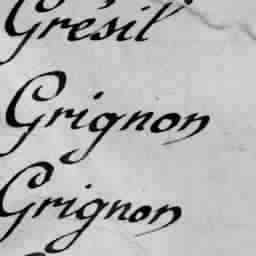 Grésil
Grignon
Grignon